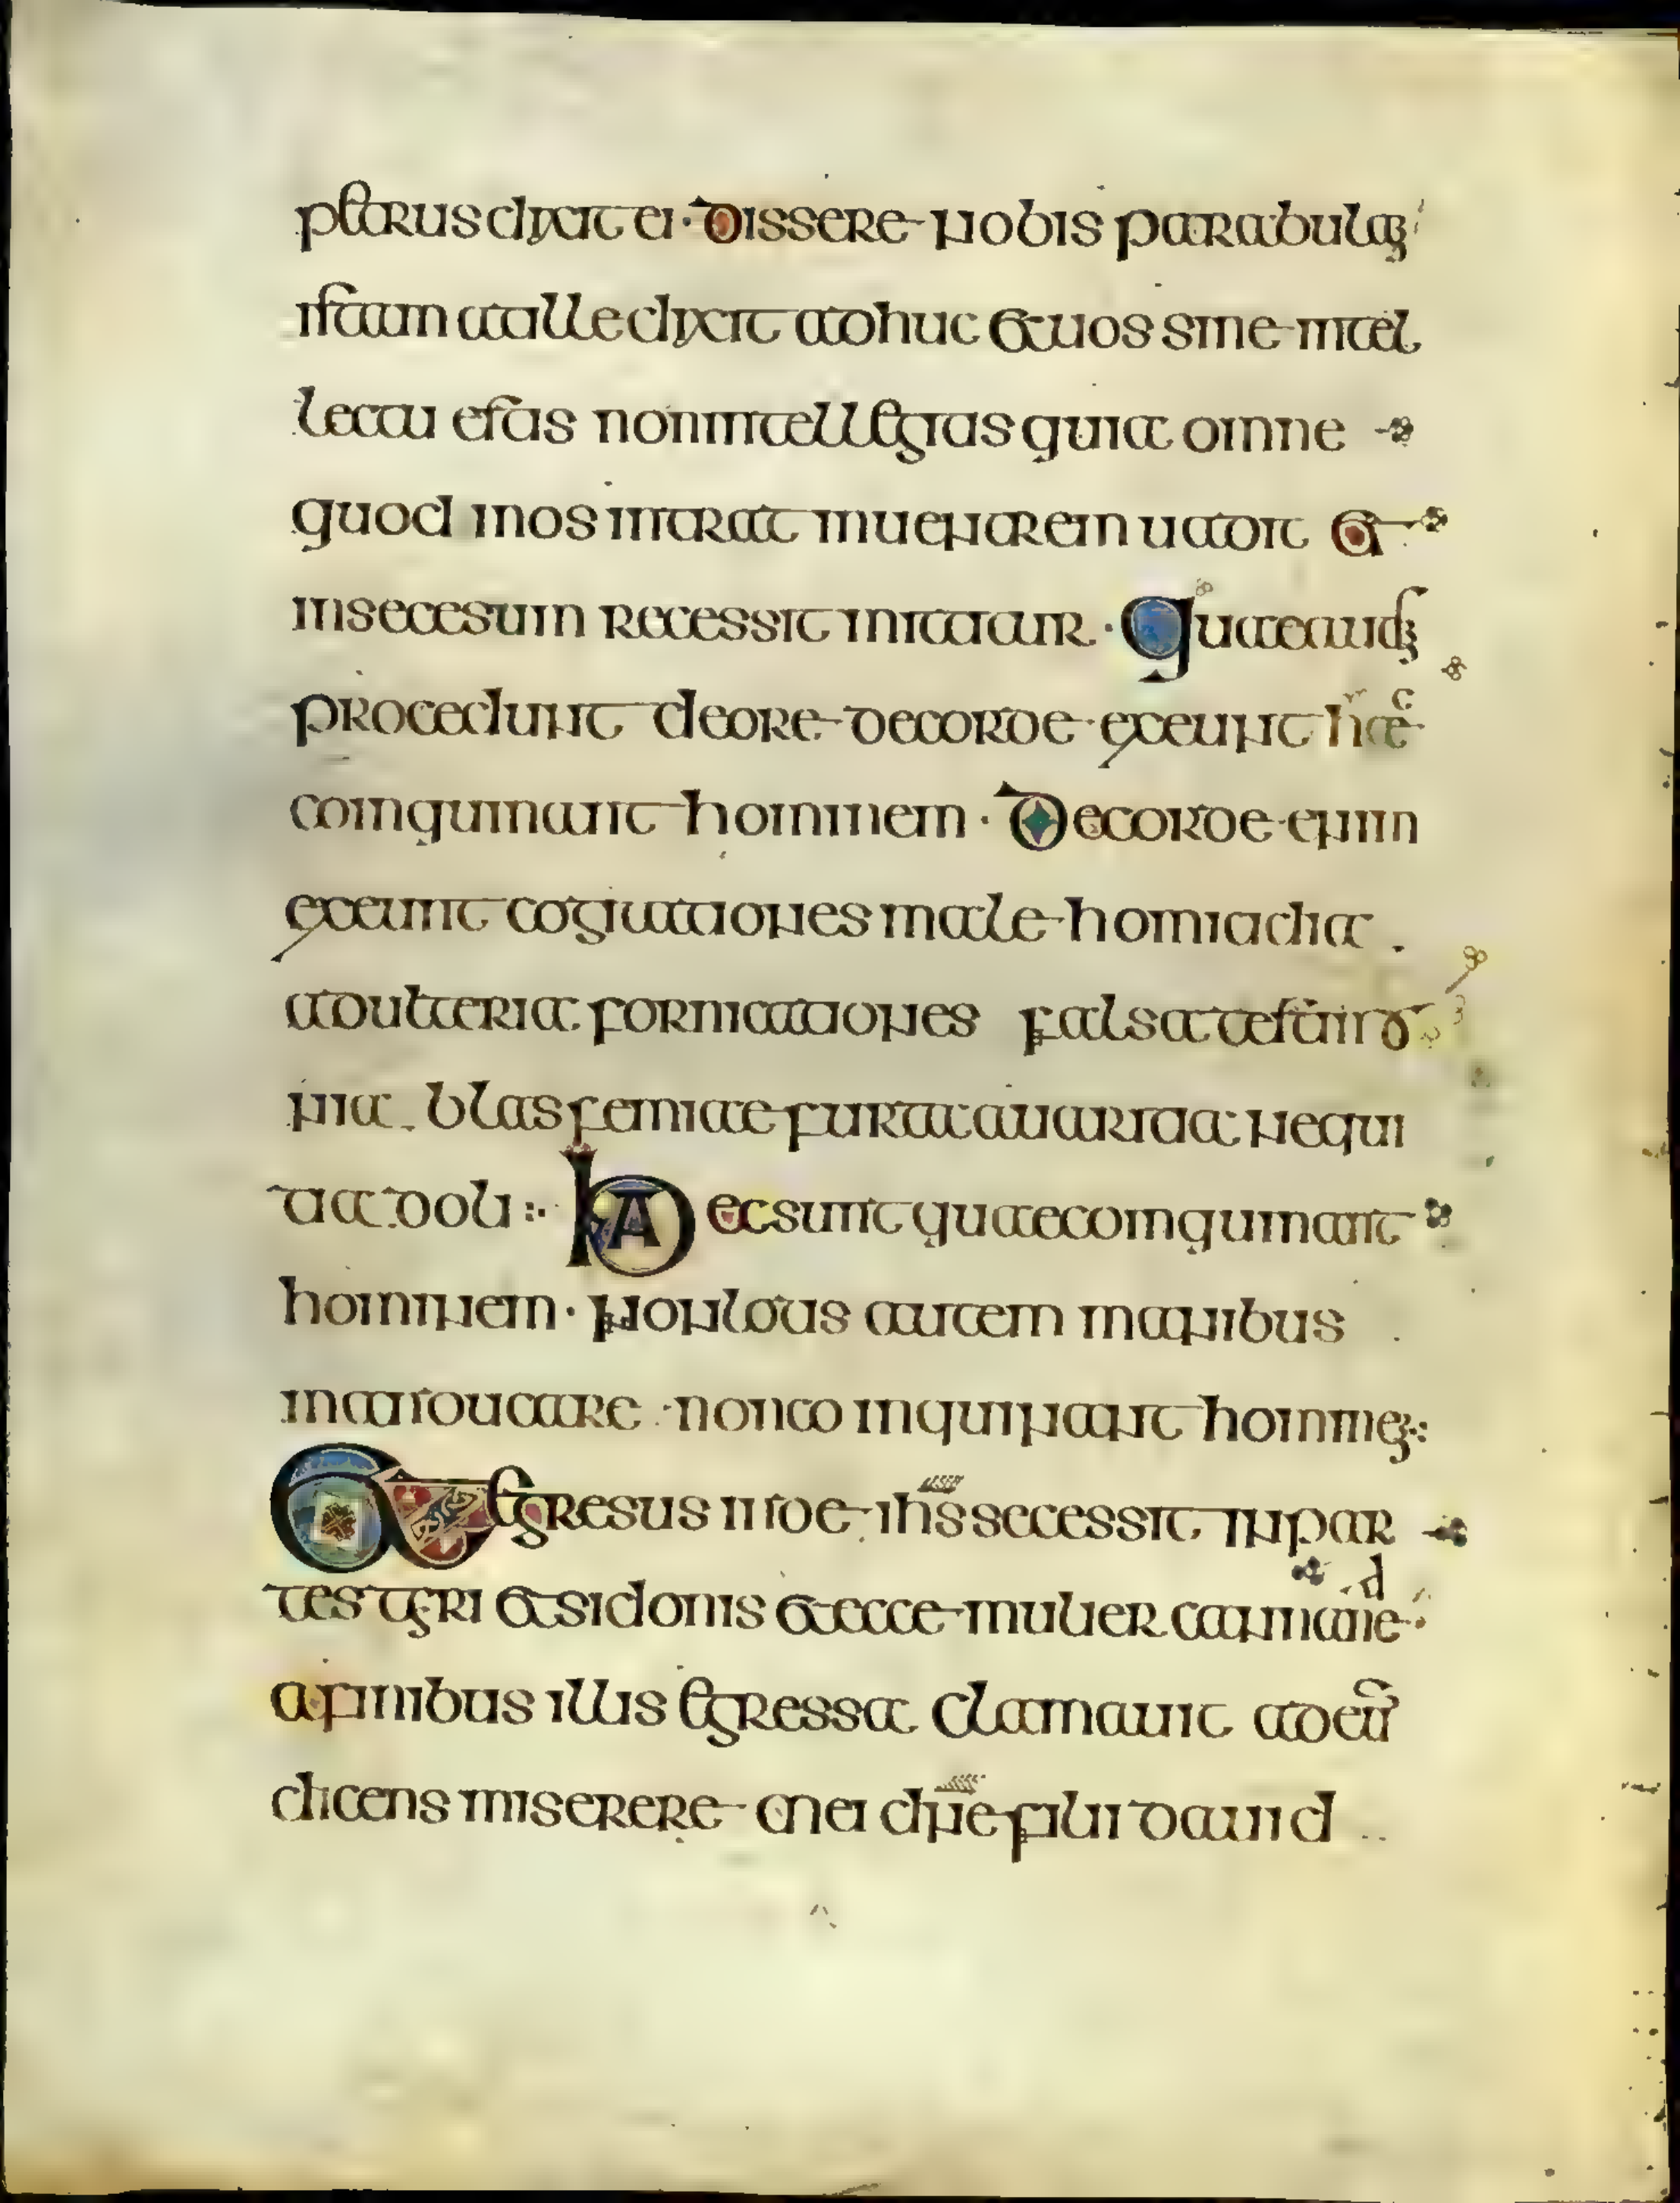 petrus dixit ei · dissere nobis parabulam
istam at ille dixit adhuc et uos sine intel
lectu estis non intellegitas quia omne
quod in os intrat in uentrem uadit et
in secesum recessit emittitur · Quae autem
procedunt de ore de corde exeunt haec
coinquinant hominem · De corde enim
exeunt cogitationes male homicidia .
adulteria fornicationes falsa testimo
nia . blasfemiae furta auaritia nequi
tia doli :· Haec sunt quae coinquinant
hominem · non lotis autem manibus
manducare · non co inquinant hominem :·
Et egresus inde ihs secessit in par
tes tyri et sidonis et ecce mulier cannane
d
a finibus illis egressa clamauit ad eum
dicens miserere mei dne fili dauid ..